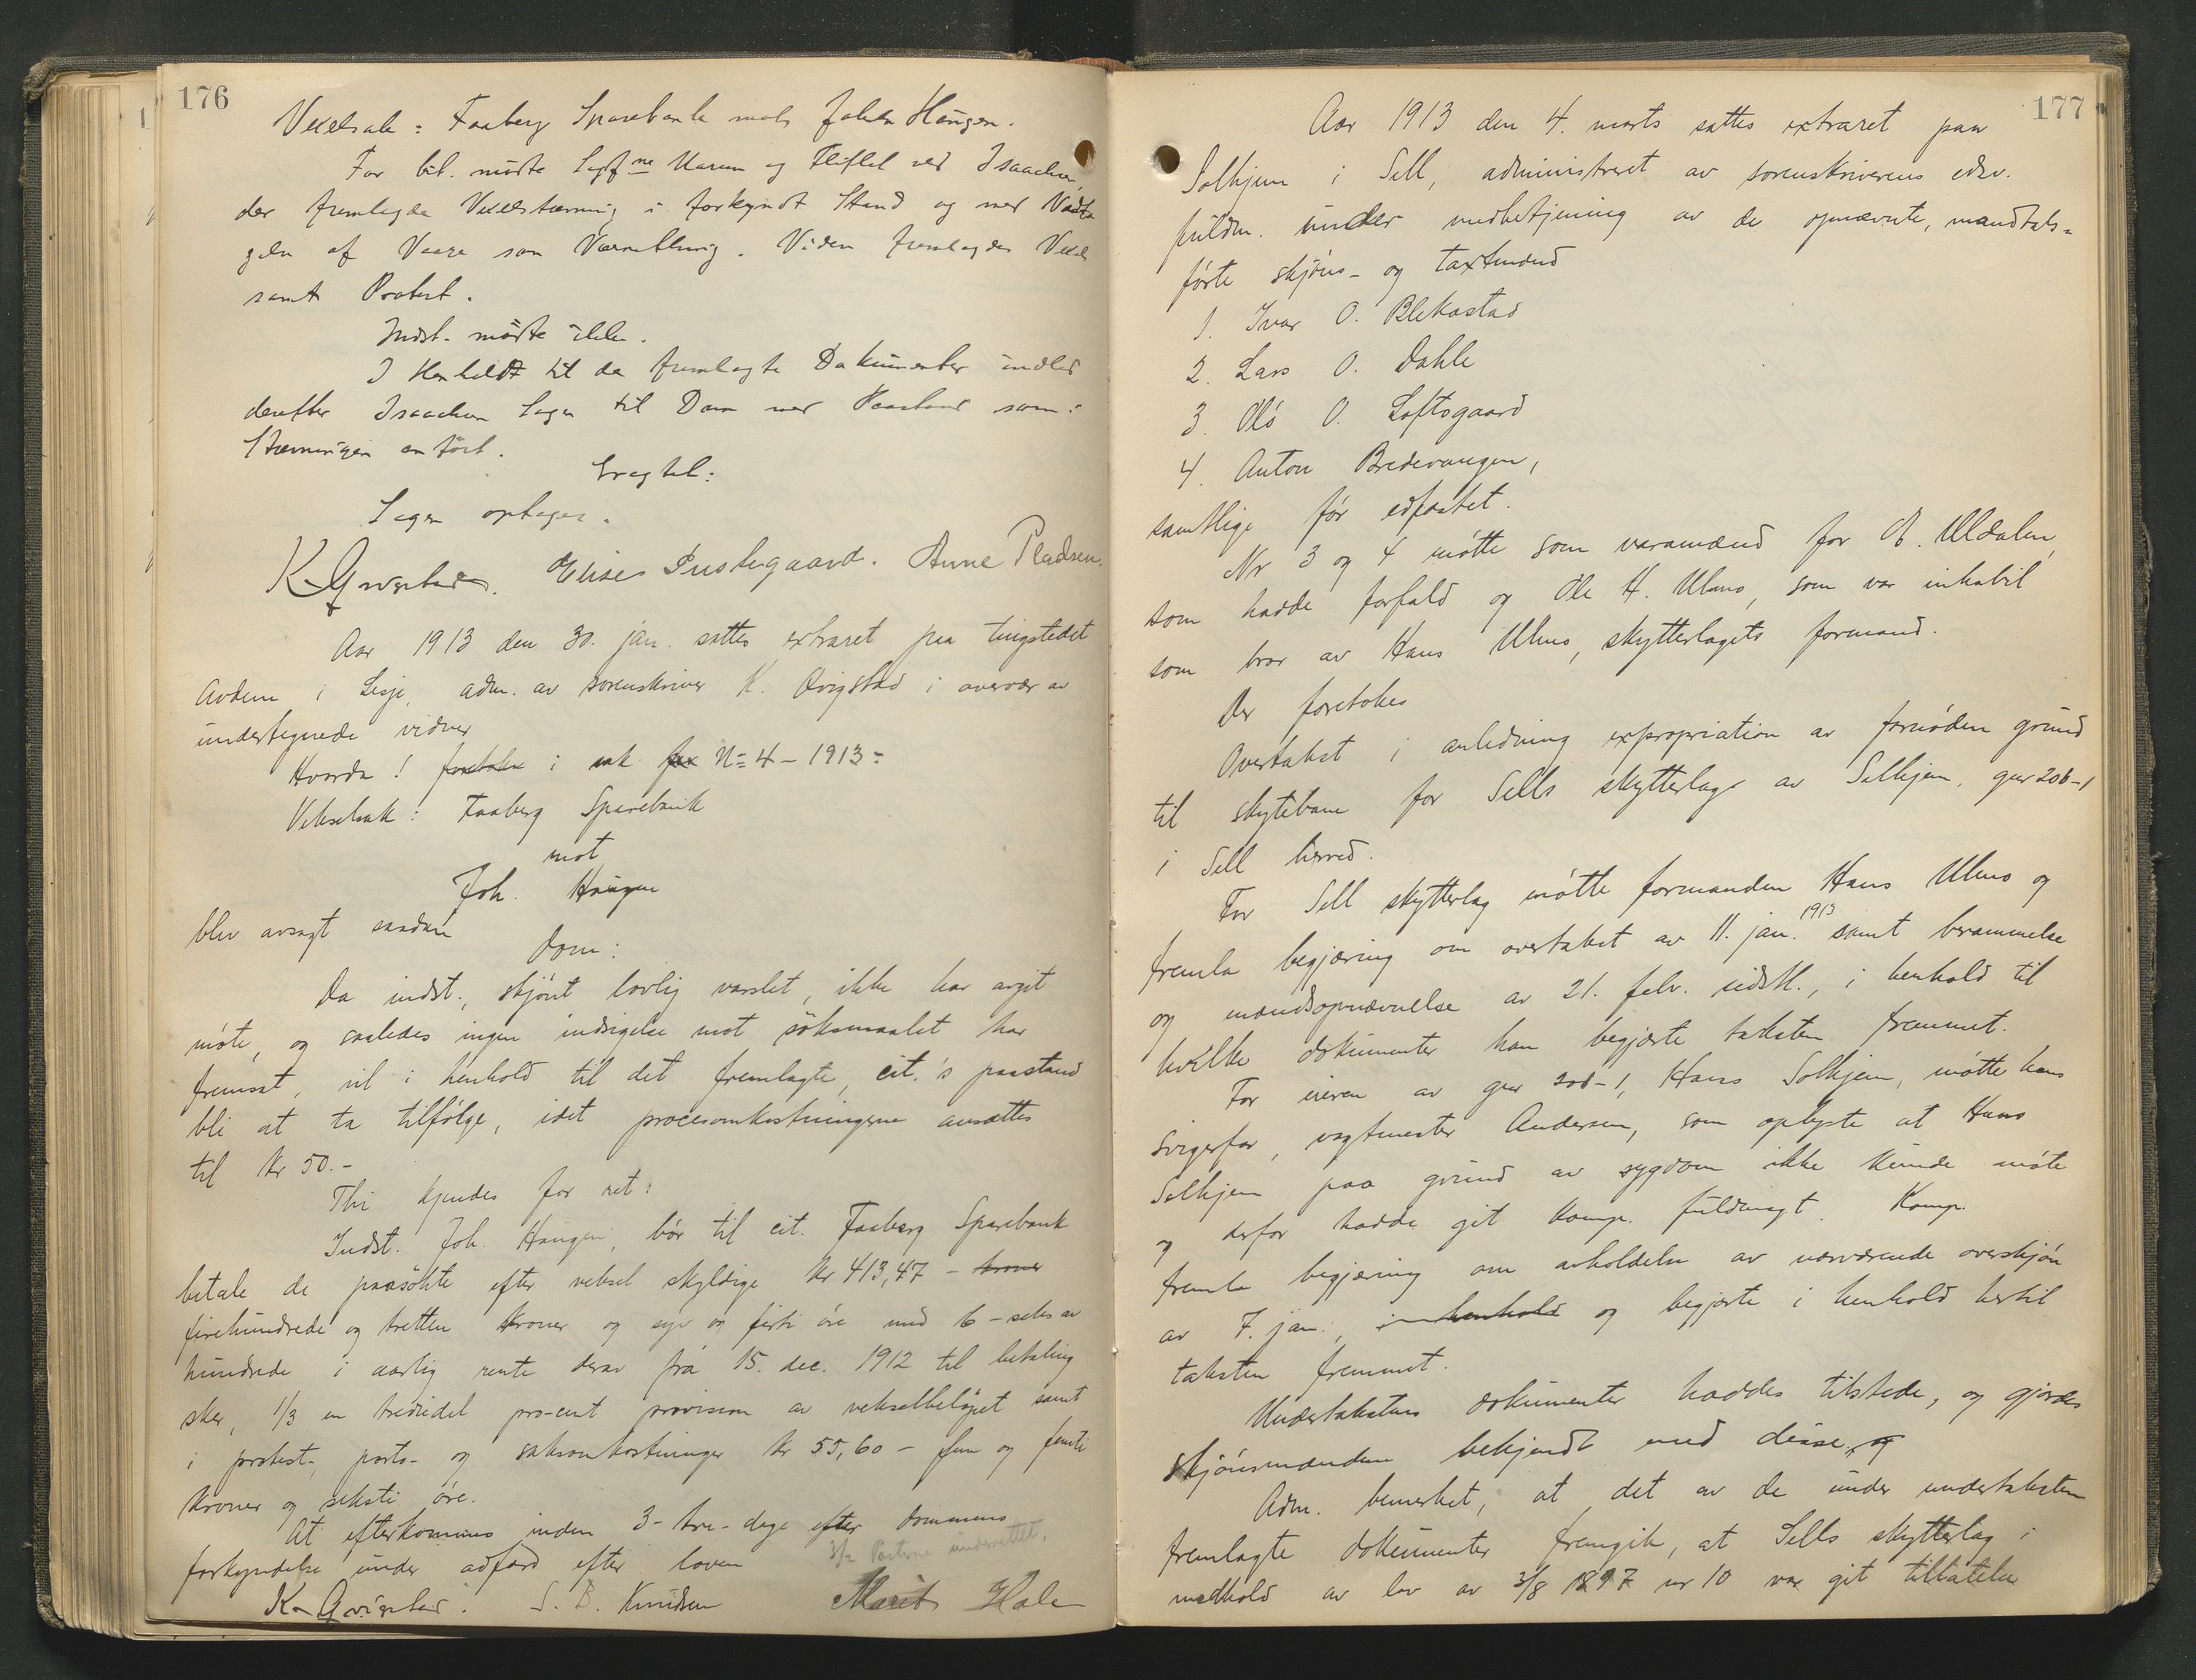 176
Vexelsak: Faaberg Sparebank mod Johan Haugen.
For cit. mødte Sagf.ne Marum og Fliflet ved Isaachsen,
der fremlagde Vexelstævning i forkyndt Stand og med Vedta
gelse af Vaage som Værnething. Viden fremlagdes Vexel
samt Protest.
Indst. mødte ikke.
I Henhold til de fremlagte Dokumenter indlod
derefter Isaachsen Sagen til Dom med Paastand som i
Stævningen anført.
Eragtet:
Sagen optages.
K Qvigstad. Elise Sustugaard. Anne Pladsen.
Aar 1913 den 30. jan. sattes extraret paa tingstedet
Avdem i Lesje, adm. av sorenskriver K. Qvigstad i overvær av
undertegnede vidner
Hvorda! foretokes i sak for N= 4 - 1913:
Vekselsak: Faaberg Sparebank
mot
Joh. Haugen
blev avsagt saadan
dom:
Da indst., skjønt lovlig varslet, ikke har avgit
møte, og saaledes ingen indsigelse mot søksmaalet har
fremsat, vil i henhold til det fremlagte, cit.'s paastand
bli at ta tilfølge, idet procesomkostningerne ansættes
til kr 50.-
Thi kjendes for ret:
Indst. Joh. Haugen, bør til cit. Faaberg Sparebank
betale de paasøkte efter veksel skyldige kr 413,47 - kroner
firehundrede og tretten kroner og syv og firti øre med 6 - seks av
hundrede i aarlig rente derav fra 15. dec. 1912 til betaling
sker, 1/3 en trediedel pro-cent provision av vekselbeløpet samt
i protest-, porto- og saksomkostninger kr 55,60 - fem og femti
kroner og seksti øre.
At efterkommes inden 3 - tre - dage efter dommens
forkyndelse under adfærd efter loven
3/2 Parterne underrettet.
K Qvigstad. S. B. Knudsen Marit Hole
177
Aar 1913 den 4. marts sattes extraret paa
Solhjem i Sell, administreret av sorenskriverens edsv.
fuldm. under medbetjening av de opnævnte, mandtals-
førte skjøns- og taxtmænd
1. Ivar O. Blekastad
2. Lars O. Dahle
3. Ole O. Loftsgaard
4. Anton Bredevangen,
samtlige før edfæstet.
Nr 3 og 4 møtte som varamænd for O. Uldalen,
som hadde forfald og Ole H. Ulmo, som var inhabil
som bror av Hans Ulmo, skytterlagets formand.
Der foretokes
Overtakst i anledning expropriation av fornøden grund
til skytebane for Sells skytterlag av Solhjem, gnr 206-1
i Sell herred.
For Sell skytterlag møtte formanden Hans Ulmo og
fremla begjæring om overtakst av 11. jan. 1913 samt berammelse
og mændsopnævnelse av 21. febr. sidstl., i henhold til
hvilke dokumenter han begjærte taksten fremmet.
For eieren av gnr 206-1, Hans Solhjem, møtte hans
svigerfar, vagtmester Andersen, som oplyste at Hans
Solhjem paa grund av sygdom ikke kunde møte
og derfor hadde git komp. fuldmagt. Komp.
fremla begjæring om avholdelse av nærværende overskjøn
av 7. jan., i henhold og begjærte i henhold hertil
taksten fremmet.
Undertakstens dokumenter haddes tilstede, og gjordes
skjønsmændene bekjendt med disse, og
Adm. bemerket, at det av de under undertaksten
fremlagte dokumenter fremgik, at Sells skytterlag i
medhold av lov av 3/8 1897 nr 10 var git tillatelse